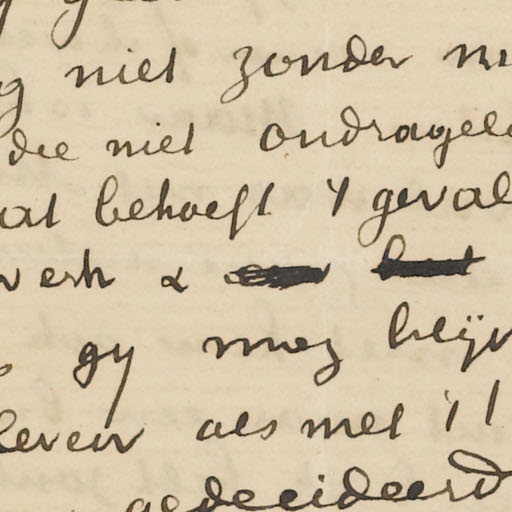 niet zonder
die niet ondragel
at behoeft 't geval
werk &
gy mag blijv
leven als met 't
gedecideerd